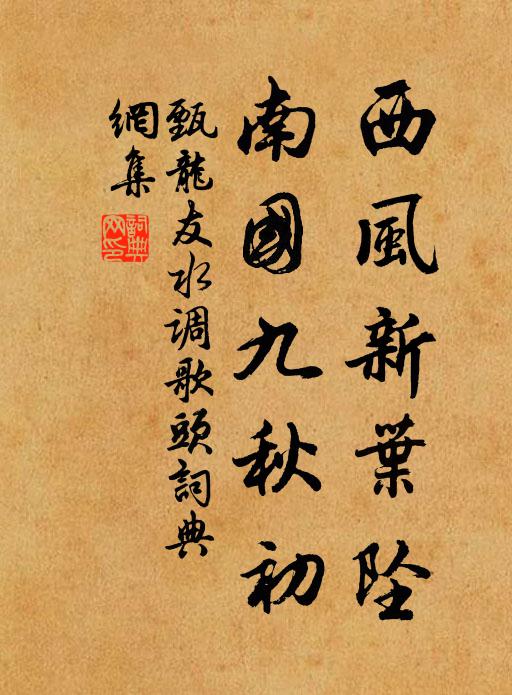 西風新葉墜
南國九秋初
甄龍友水调歌頭詞典
網集
詞典網印